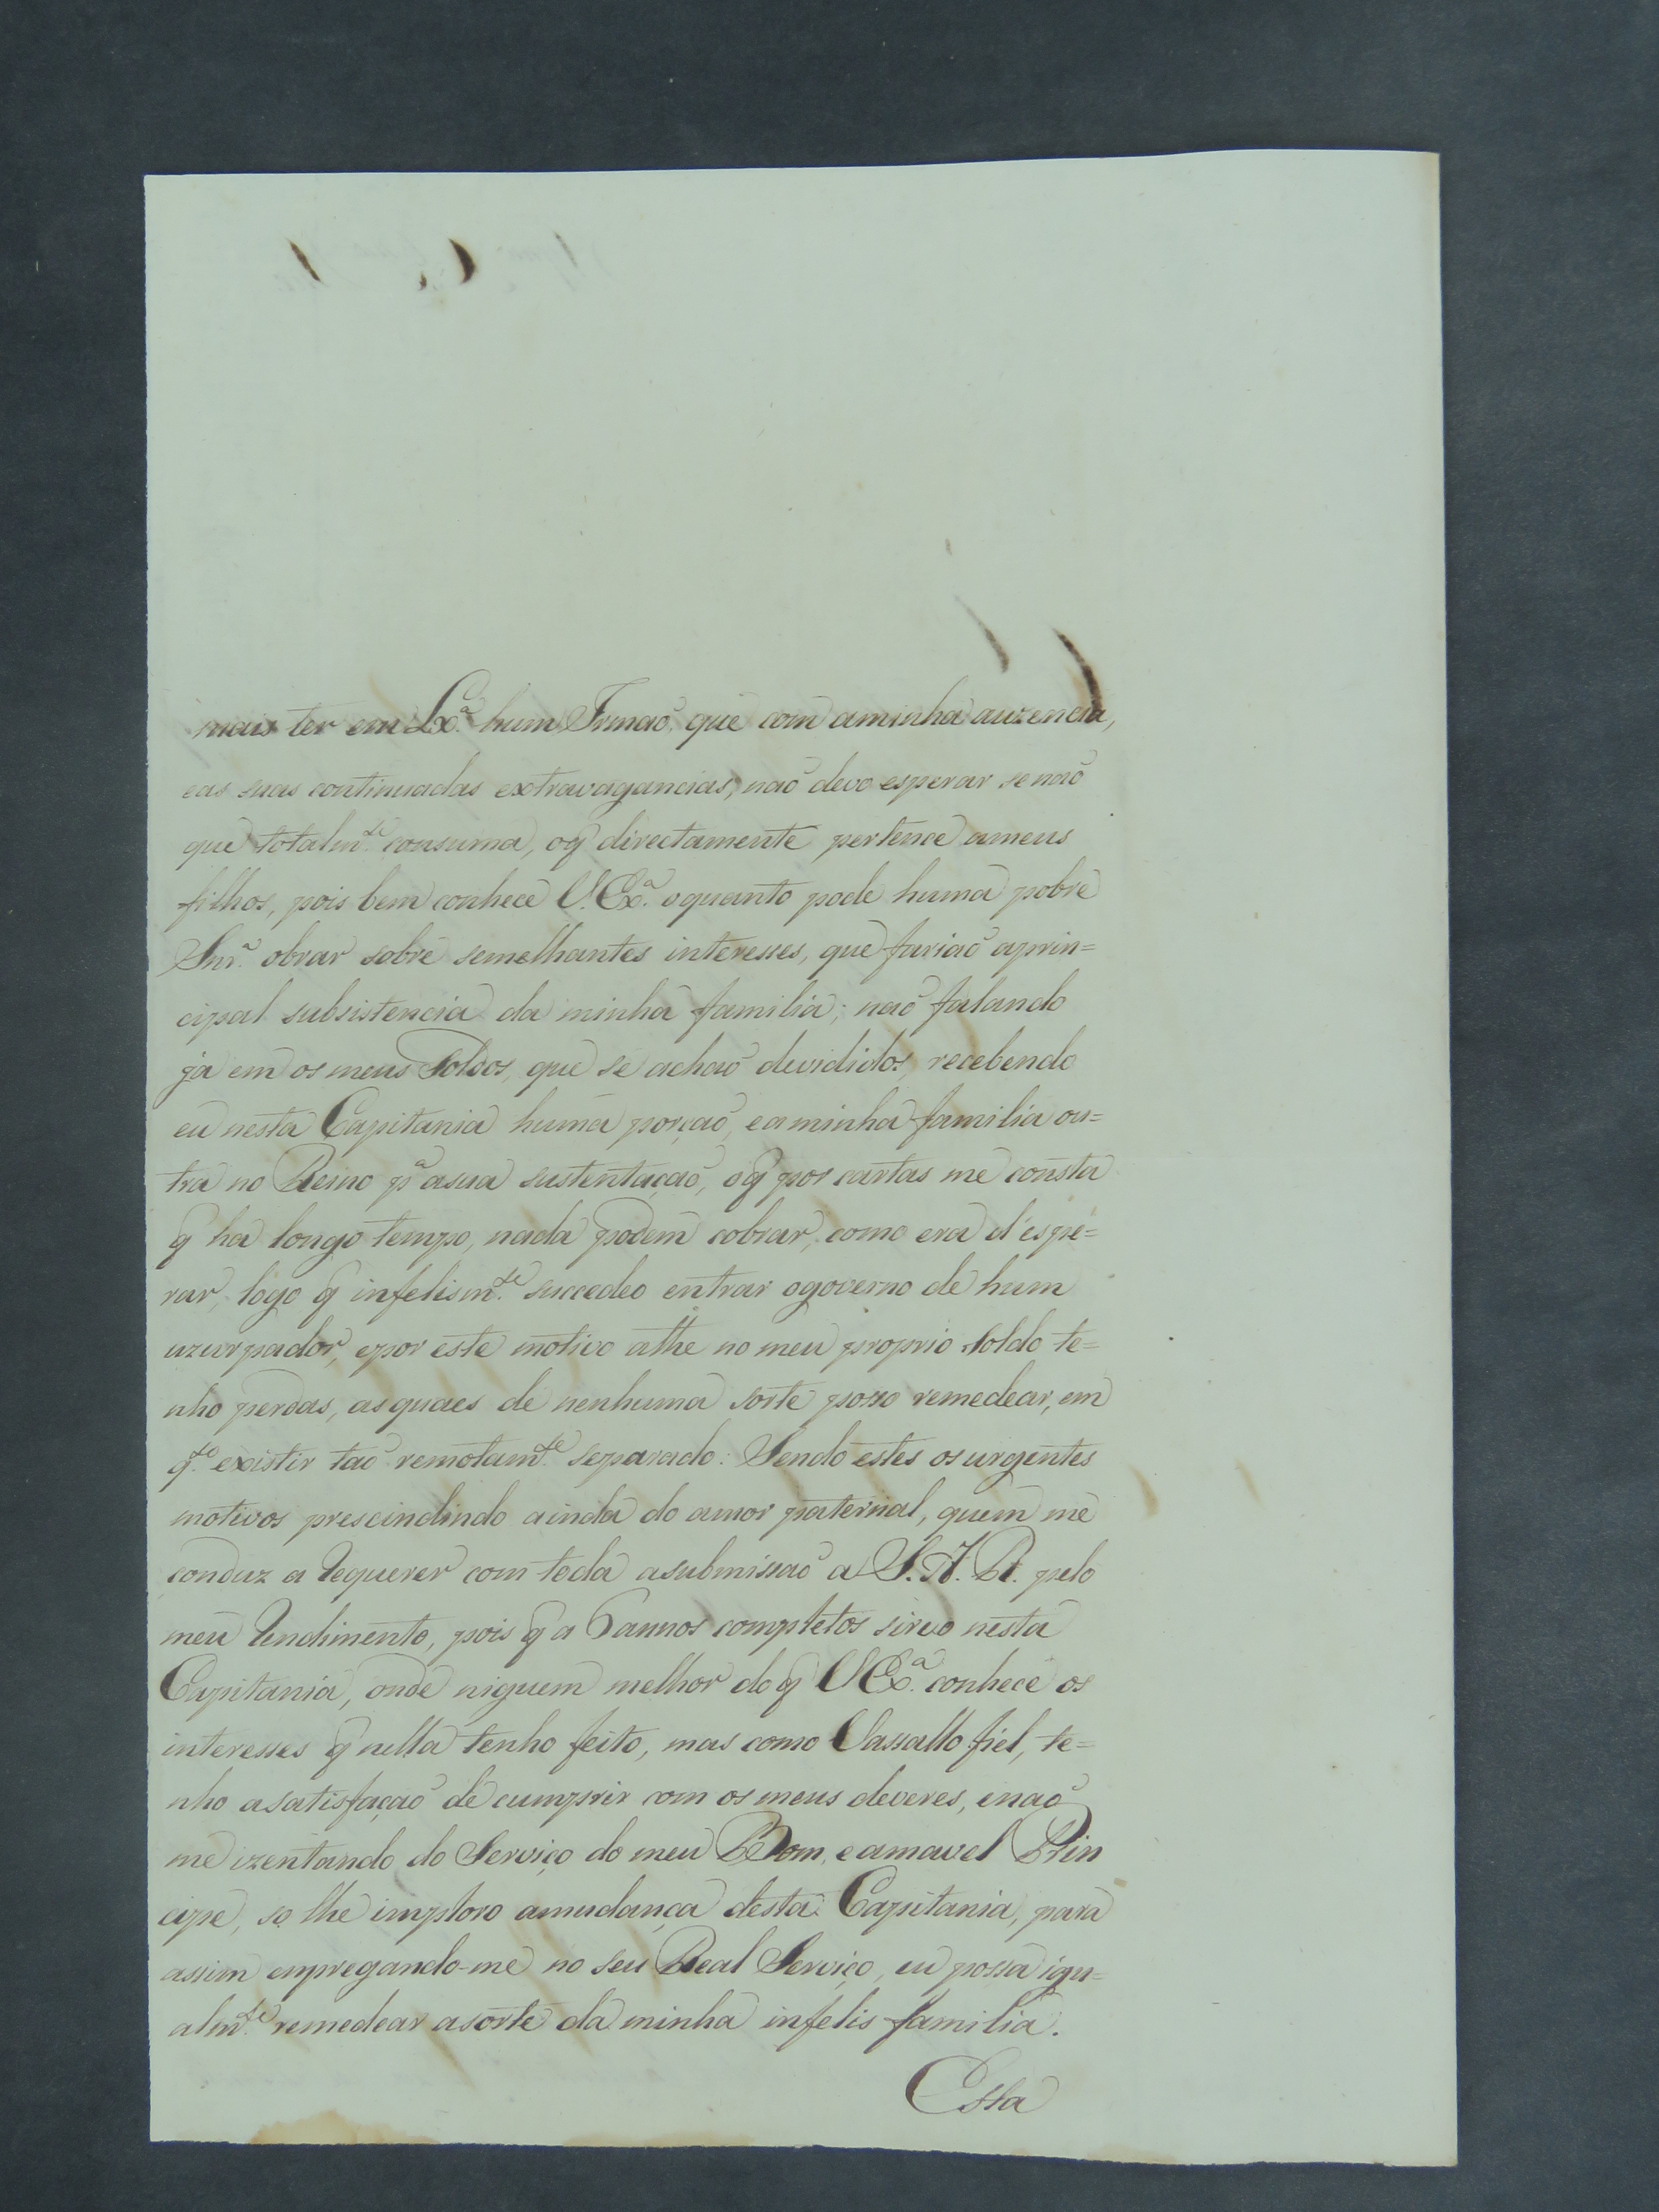 mais ter em Lxª. hum Irmaõ, que com aminha auzencia,
eas suas continuadas extravagancias, naõ devo esperar se naõ
que totalmte. consuma, oq̃ directamente pertence ameus
filhos, pois bem conhece V. Exª. oquanto pode huma pobre
Snrª. obrar sobre semelhantes interesses, que fariaõ aprin=
cipal subsistencia da minha familia; naõ falando
ja em os meus Soldos, que se achaõ devididos, recebendo
eu nesta Capitania huma porçaõ, eaminha familia ou=
tra no Reino pª asua sustentaçaõ, oq̃ por cartas me consta
q̃ ha longo tempo, nada podem cobrar, como era d'espe=
rar, logo q̃ infelismte. succedeo entrar ogoverno de hum
uzurpador, epor este motivo athe no meu proprio soldo te=
nho perdas, asquaes de nenhuma sorte posso remedear, em
qto. existir taõ remotamte. separado: Sendo estes os urgentes
motivos prescindindo ainda do amor paternal, quem me
conduz a requerer com toda asubmissaõ a S. A. R. pelo
meu rendimento, pois q̃ a 6 annos completos sirvo nesta
Capitania, onde niguem melhor do q̃ V Exª. conhece os
interesses q̃ nella tenho feito, mas como Vassallo fiel, te=
nho asatisfaçaõ de cumprir com os meus deveres, enaõ
me izentando do Serviço do meu Bom, eamavel Prin
cipe, so lhe imploro amudança desta Capitania, para
assim empregando-me no seu Real Serviço, eu possa igu=
almte. remedear asorte da minha infelis familia.
Esta